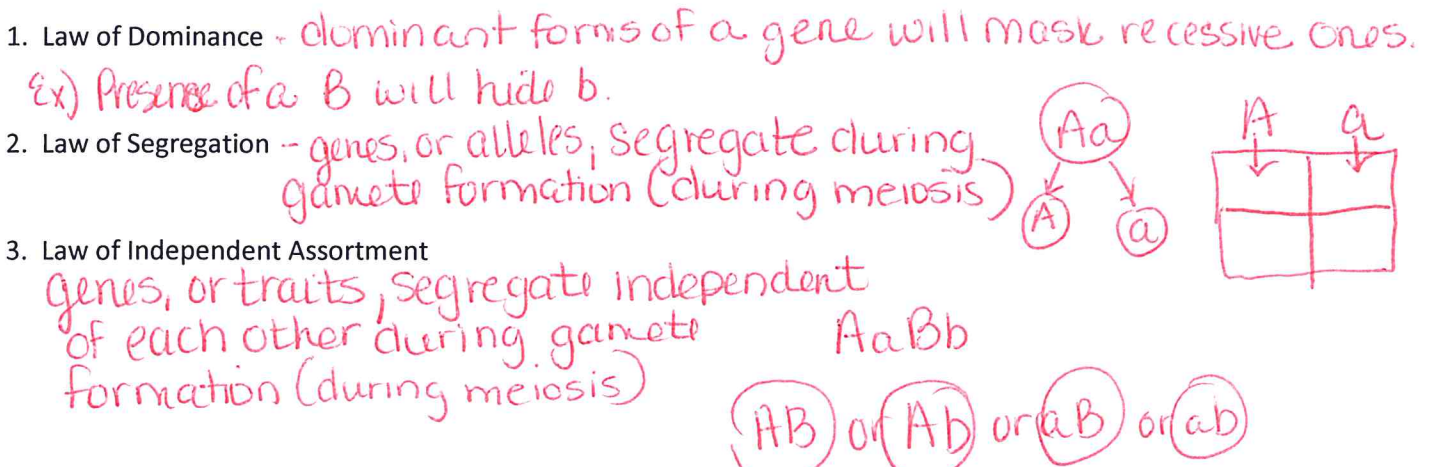 1. Law of Dominance - dominant forms of a gene will mask recessive ones.
Ex) Presence of a B will hide b.
2. Law of Segregation -- genes, or alleles, segregate during
gamete formation (during meiosis)
Aa
A a
A a
3. Law of Independent Assortment
genes, or traits, segregate independent
of each other during gamete
formation (during meiosis)
AaBb
AB or Ab or aB or ab